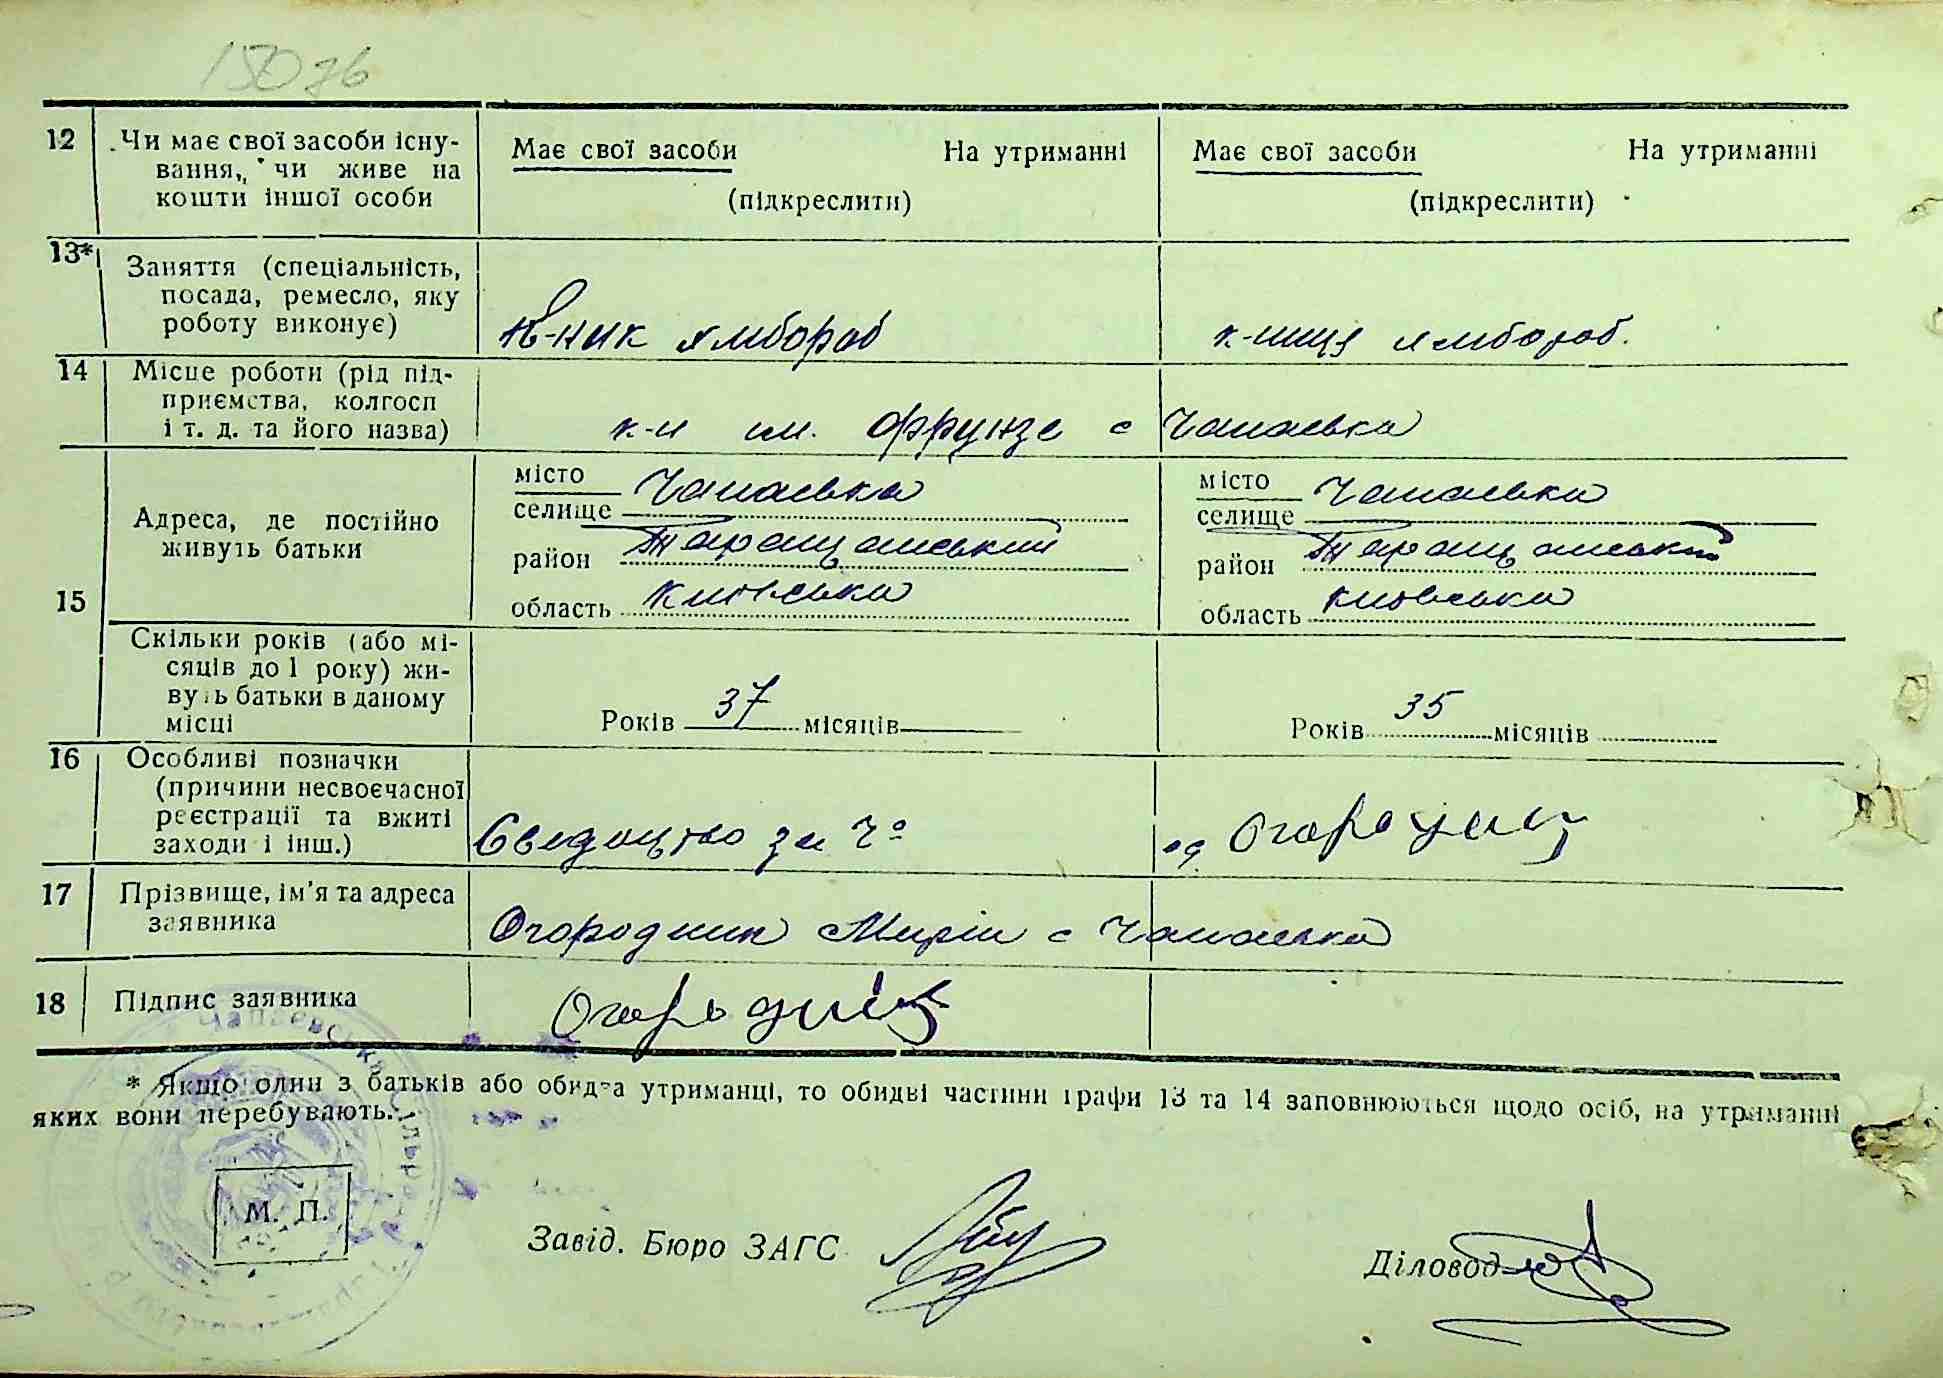 150 зв
12 Чи має свої засоби існу-
вання, чи живе на
кошти іншої особи
Має свої засоби На утриманні
(підкреслити)
Має свої засоби На утриманні
(підкреслити)
13* Заняття (спеціальність,
посада, ремесло, яку
роботу виконує)
к-ник хлібороб
к-ниця хлібороб.
14 Місце роботи (рід під-
приємства, колгосп
і т. д. та його назва)
к-п ім. Фрунзе с Чапаєвка
15 Адреса, де постійно
живуть батьки
місто
селище Чапаєвка
район Таращанський
область Київська
місто
селище Чапаєвка
район Таращанський
область Київська
Скільки років (або мі-
сяців до 1 року) жи-
вуть батьки в даному
місці
Років 37 місяців
Років 35 місяців
16 Особливі позначки
(причини несвоєчасної
реєстрації та вжиті
заходи і інш.)
Свидоцтво за Ч° од Огородник
17 Прізвище, ім'я та адреса
заявника
Огородник Марія с Чапаєвка
18 Підпис заявника
Огородник
* Якщо один з батьків або обидва утриманці, то обидві частини графи 13 та 14 заповнюються щодо осіб, на утриманні
яких вони перебувають.
Чапаєвська сільр
М. П.
Завід. Бюро ЗАГС
Діловод